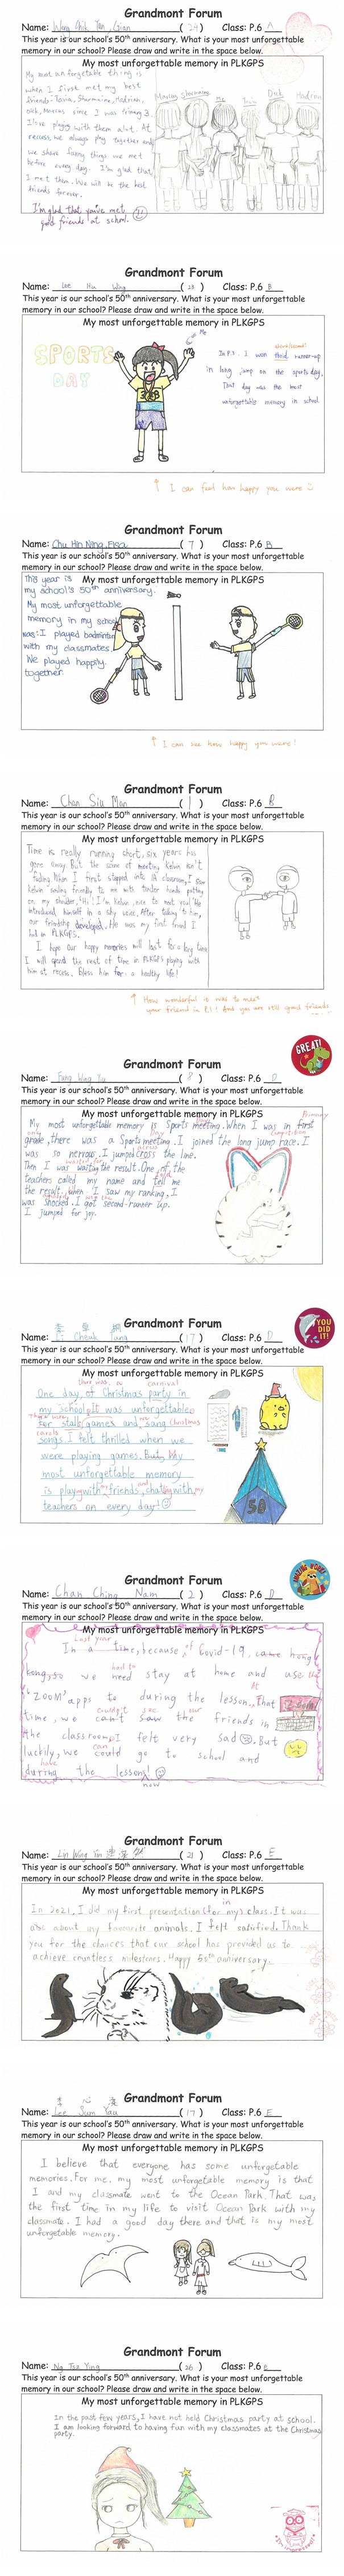 Grandmont Forum
Name: Wong Chik Yan, Gian (24) Class: P.6 A
This year is our school's 50th anniversary. What is your most unforgettable
memory in our school? Please draw and write in the space below.
My most unforgettable memory in PLKGPS
My most unforgetable thing is
when I first met my best
friends: Sharmaine, Hadrian,
Dick, Marcus since I was primary 3.
I love playing with them alot. At
recess, we always play together and
we share funny things we met
before every day. I'm glad that
I met them. We will be the best
friends forever.
Marcus Sharmaine Me Dick Hadrian
I'm glad that you've met
good friends at school.
Grandmont Forum
Name: Lee Hiu Wing (23) Class: P.6 B
This year is our school's 50th anniversary. What is your most unforgettable
memory in our school? Please draw and write in the space below.
My most unforgettable memory in PLKGPS
SPORTS
DAY
Me
In P.1, I won third runner-up
in long jump on the sports day.
That day was the best
unforgettable memory in school.
I can feel how happy you were
Grandmont Forum
Name: Chu Hin Ning, Elsa (7) Class: P.6 B
This year is our school's 50th anniversary. What is your most unforgettable
memory in our school? Please draw and write in the space below.
My most unforgettable memory in PLKGPS
This year is
my school's 50th anniversary.
My most unforgettable
memory in my school
was: I played badminton
with my classmates.
We played happily
together.
I can see how happy you were!
Grandmont Forum
Name: Chan Siu Man (1) Class: P.6 B
This year is our school's 50th anniversary. What is your most unforgettable
memory in our school? Please draw and write in the space below.
My most unforgettable memory in PLKGPS
Time is really running short, six years has
gone away. But the scene of meeting Kelvin isn't
fading. When I first stepped into a classroom, I saw
kelvin smiling friendly to me with tender hands patting
on my shoulder, 'Hi! I'm Kelvin, nice to meet you!' He
introduced himself in a shy voice. After talking to him,
our friendship developed. He was my first friend I
had in PLKGPS.
I hope our happy memories will last for a long time.
I will spend the rest of time in PLKGPS playing with
him at recess. Bless him for a healthy life!
How wonderful it was to meet
your friend in P.1! And you are still good friends
GREAT!
Grandmont Forum
Name: Fung Wing Yu (8) Class: P.6 D
This year is our school's 50th anniversary. What is your most unforgettable
memory in our school? Please draw and write in the space below.
My most unforgettable memory in PLKGPS
My most unforgettable memory is Sports meeting. When I was in first
grade, there was a Sports meeting. I joined the long jump race. I
was so nervous. I jumped cross the line.
Then I was waiting the result. One of the
teachers called my name and tell me
the result. When I saw my ranking, I
was shocked. I got second runner up.
I jumped for joy.
YOU DID IT!
Grandmont Forum
Name: Li Cheuk Tung (17) Class: P.6 D
This year is our school's 50th anniversary. What is your most unforgettable
memory in our school? Please draw and write in the space below.
My most unforgettable memory in PLKGPS
One day of Christmas party in
my school. It was unforgettable
for stall games and sang Christmas
songs. I felt thrilled when we
were playing games. But, My
most unforgettable memory
is play with friends, chating with my
teachers on every day!
50
Grandmont Forum
Name: Chan Ching Nam (2) Class: P.6 D
This year is our school's 50th anniversary. What is your most unforgettable
memory in our school? Please draw and write in the space below.
My most unforgettable memory in PLKGPS
In a time, because of Covid-19 came hong
kong, so we need stay at home and use
'ZOOM' apps to during the lesson. That
time, we can't saw the friends in
the classroom. I felt very sad. But
luckily, we could go to school and
during the lesson!
now
Grandmont Forum
Name: Lin Wing Yin (21) Class: P.6 E
This year is our school's 50th anniversary. What is your most unforgettable
memory in our school? Please draw and write in the space below.
My most unforgettable memory in PLKGPS
In 2021, I did my first presentation for my class. It was
about my favourite animals. I felt satisfied. Thank
you for the chances that our school has provided us to
achieve countless milestones. Happy 50th anniversary.
Grandmont Forum
Name: Lee Sum Yau (17) Class: P.6 E
This year is our school's 50th anniversary. What is your most unforgettable
memory in our school? Please draw and write in the space below.
My most unforgettable memory in PLKGPS
I believe that everyone has some unforgetable
memories. For me, my most unforgetable memory is that
I and my classmate went to the Ocean Park. That was
the first time in my life to visit Ocean Park with my
classmate. I had a good day there and that is my most
unforgetable memory.
Grandmont Forum
Name: Ng Tsz Ying (26) Class: P.6 E
This year is our school's 50th anniversary. What is your most unforgettable
memory in our school? Please draw and write in the space below.
My most unforgettable memory in PLKGPS
In the past few years, I have not held Christmas party at school.
I am looking forward to having fun with my classmates at the Christmas
party.